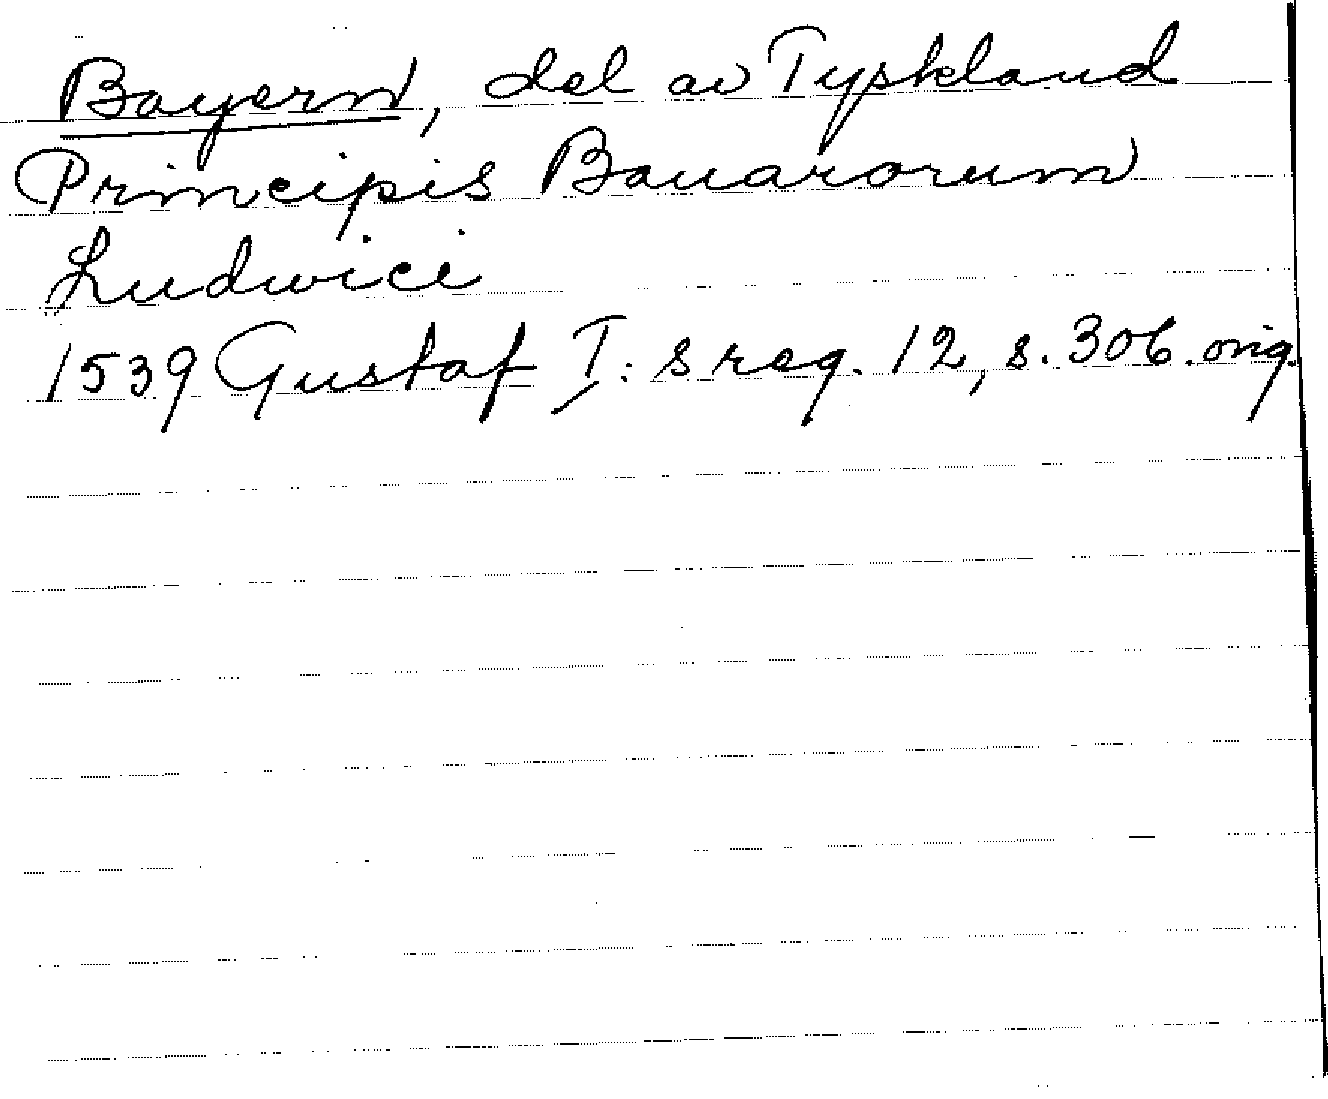 Bayern, del av Tyskland
Principis Bauarorum
Ludwici
1539 Gustaf I: s reg. 12, s. 306. orig.